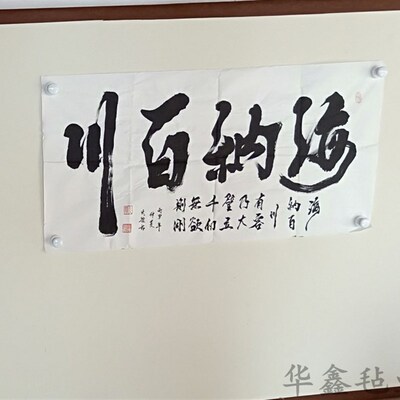 海納百川
海
納百
川
有容
乃大
壁立
千仞
無欲
則剛
华鑫毡